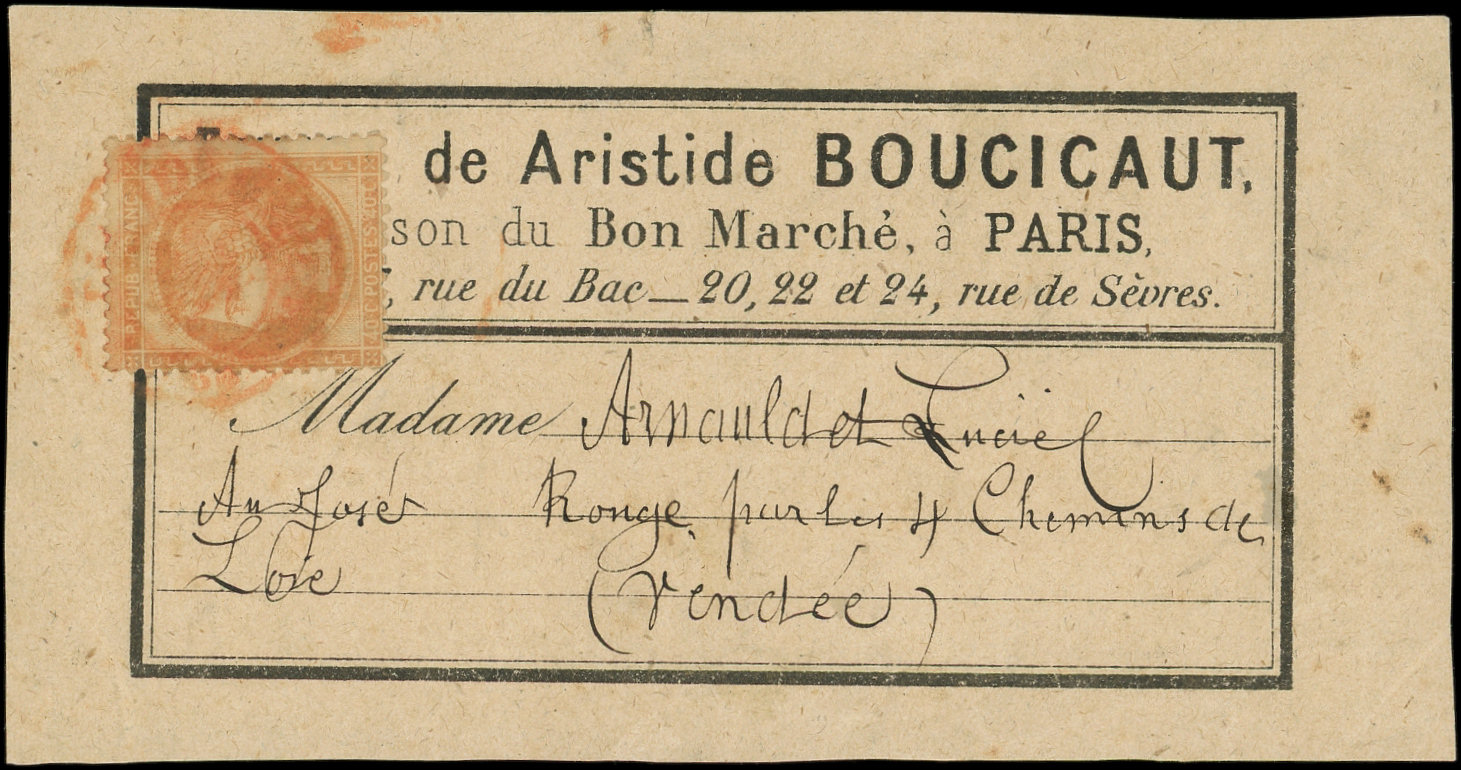 de Aristide BOUCICAUT,
son du Bon Marché, à PARIS,
, rue du Bac — 20, 22 et 24, rue de Sèvres.
REPUB. FRANC.
40 C. POSTES 40 C.
Madame Arnauld et Luciel
Au José Rouge par les 4 Chemins de
Loie
(Vendée)